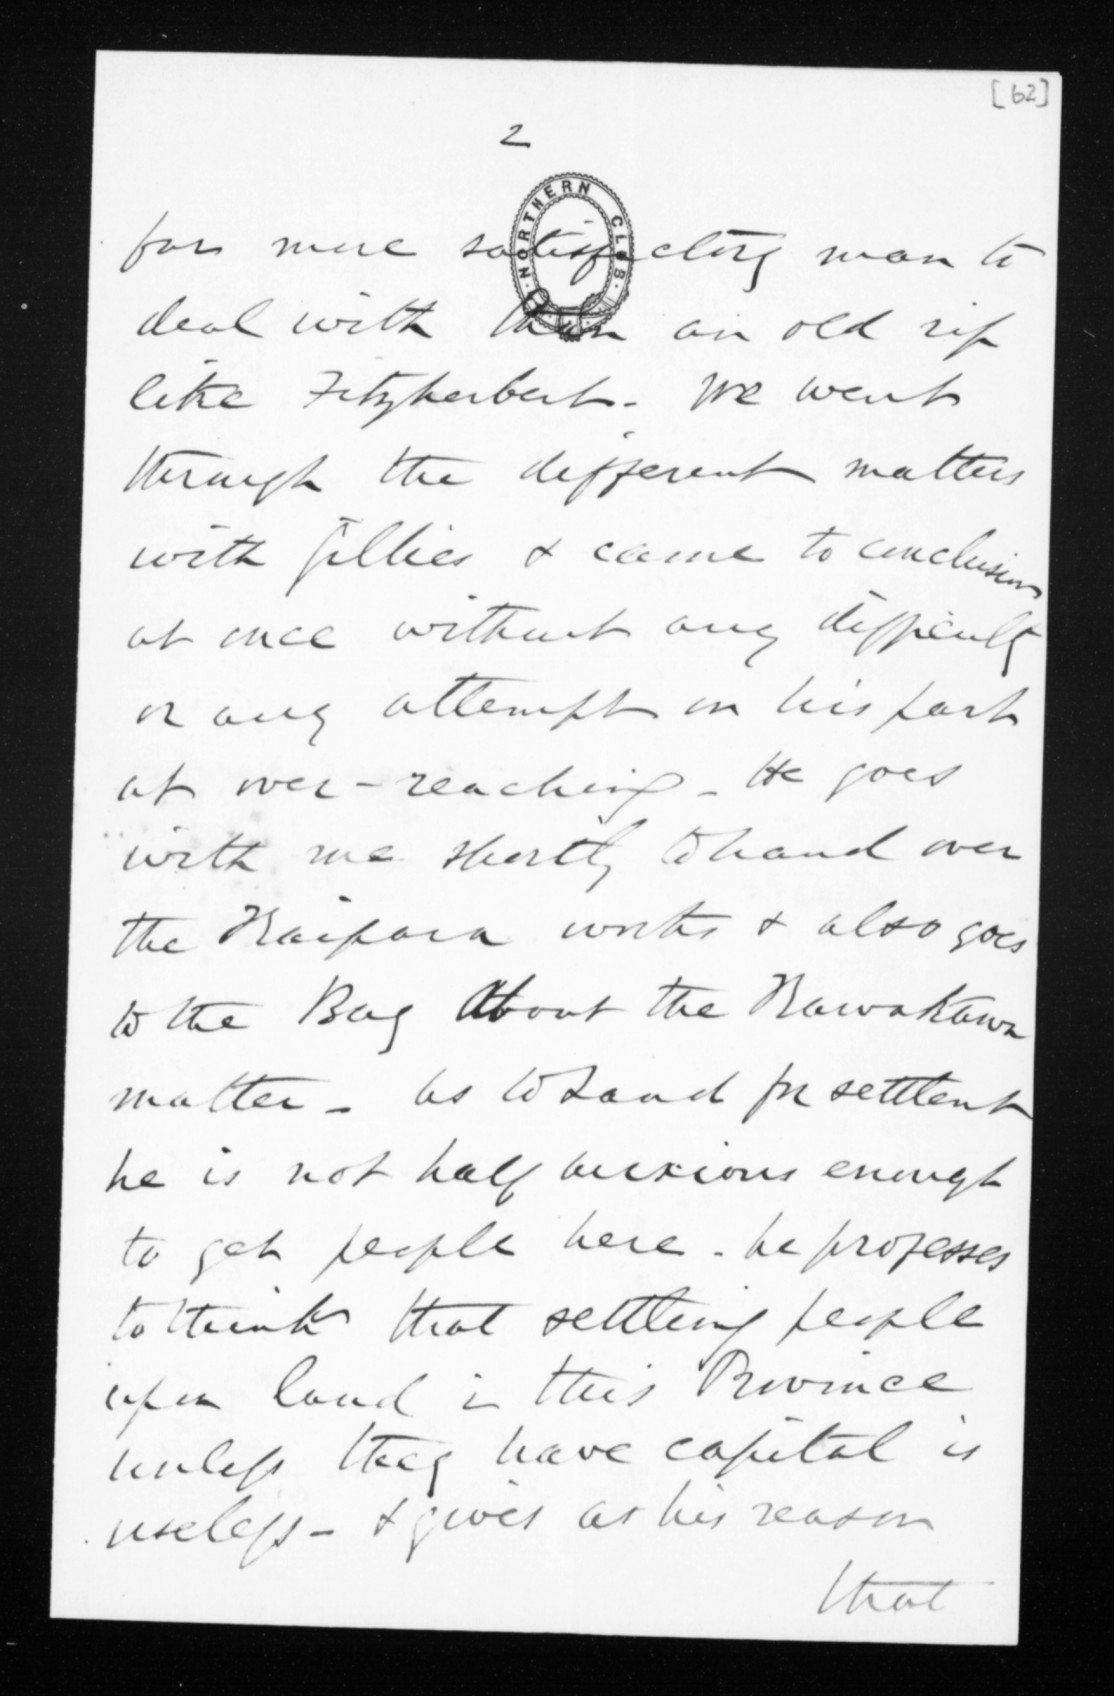 [62]
2
NORTHERN CLUB
far more satisfactory man to
deal with than an old rip
like Fitzherbert - We went
through the different matters
with Gillies & came to conclusions
at once without any difficulty
or any attempt on his part
at over-reaching - He goes
with me shortly to hand over
the Kaipara works & also goes
to the Bay About the Kawakawa
matter - As to Land for settlent
he is not half anxious enough
to get people here - he professes
to think that settling people
upon land in this Province
unless they have capital is
useless - & gives as his reason
that